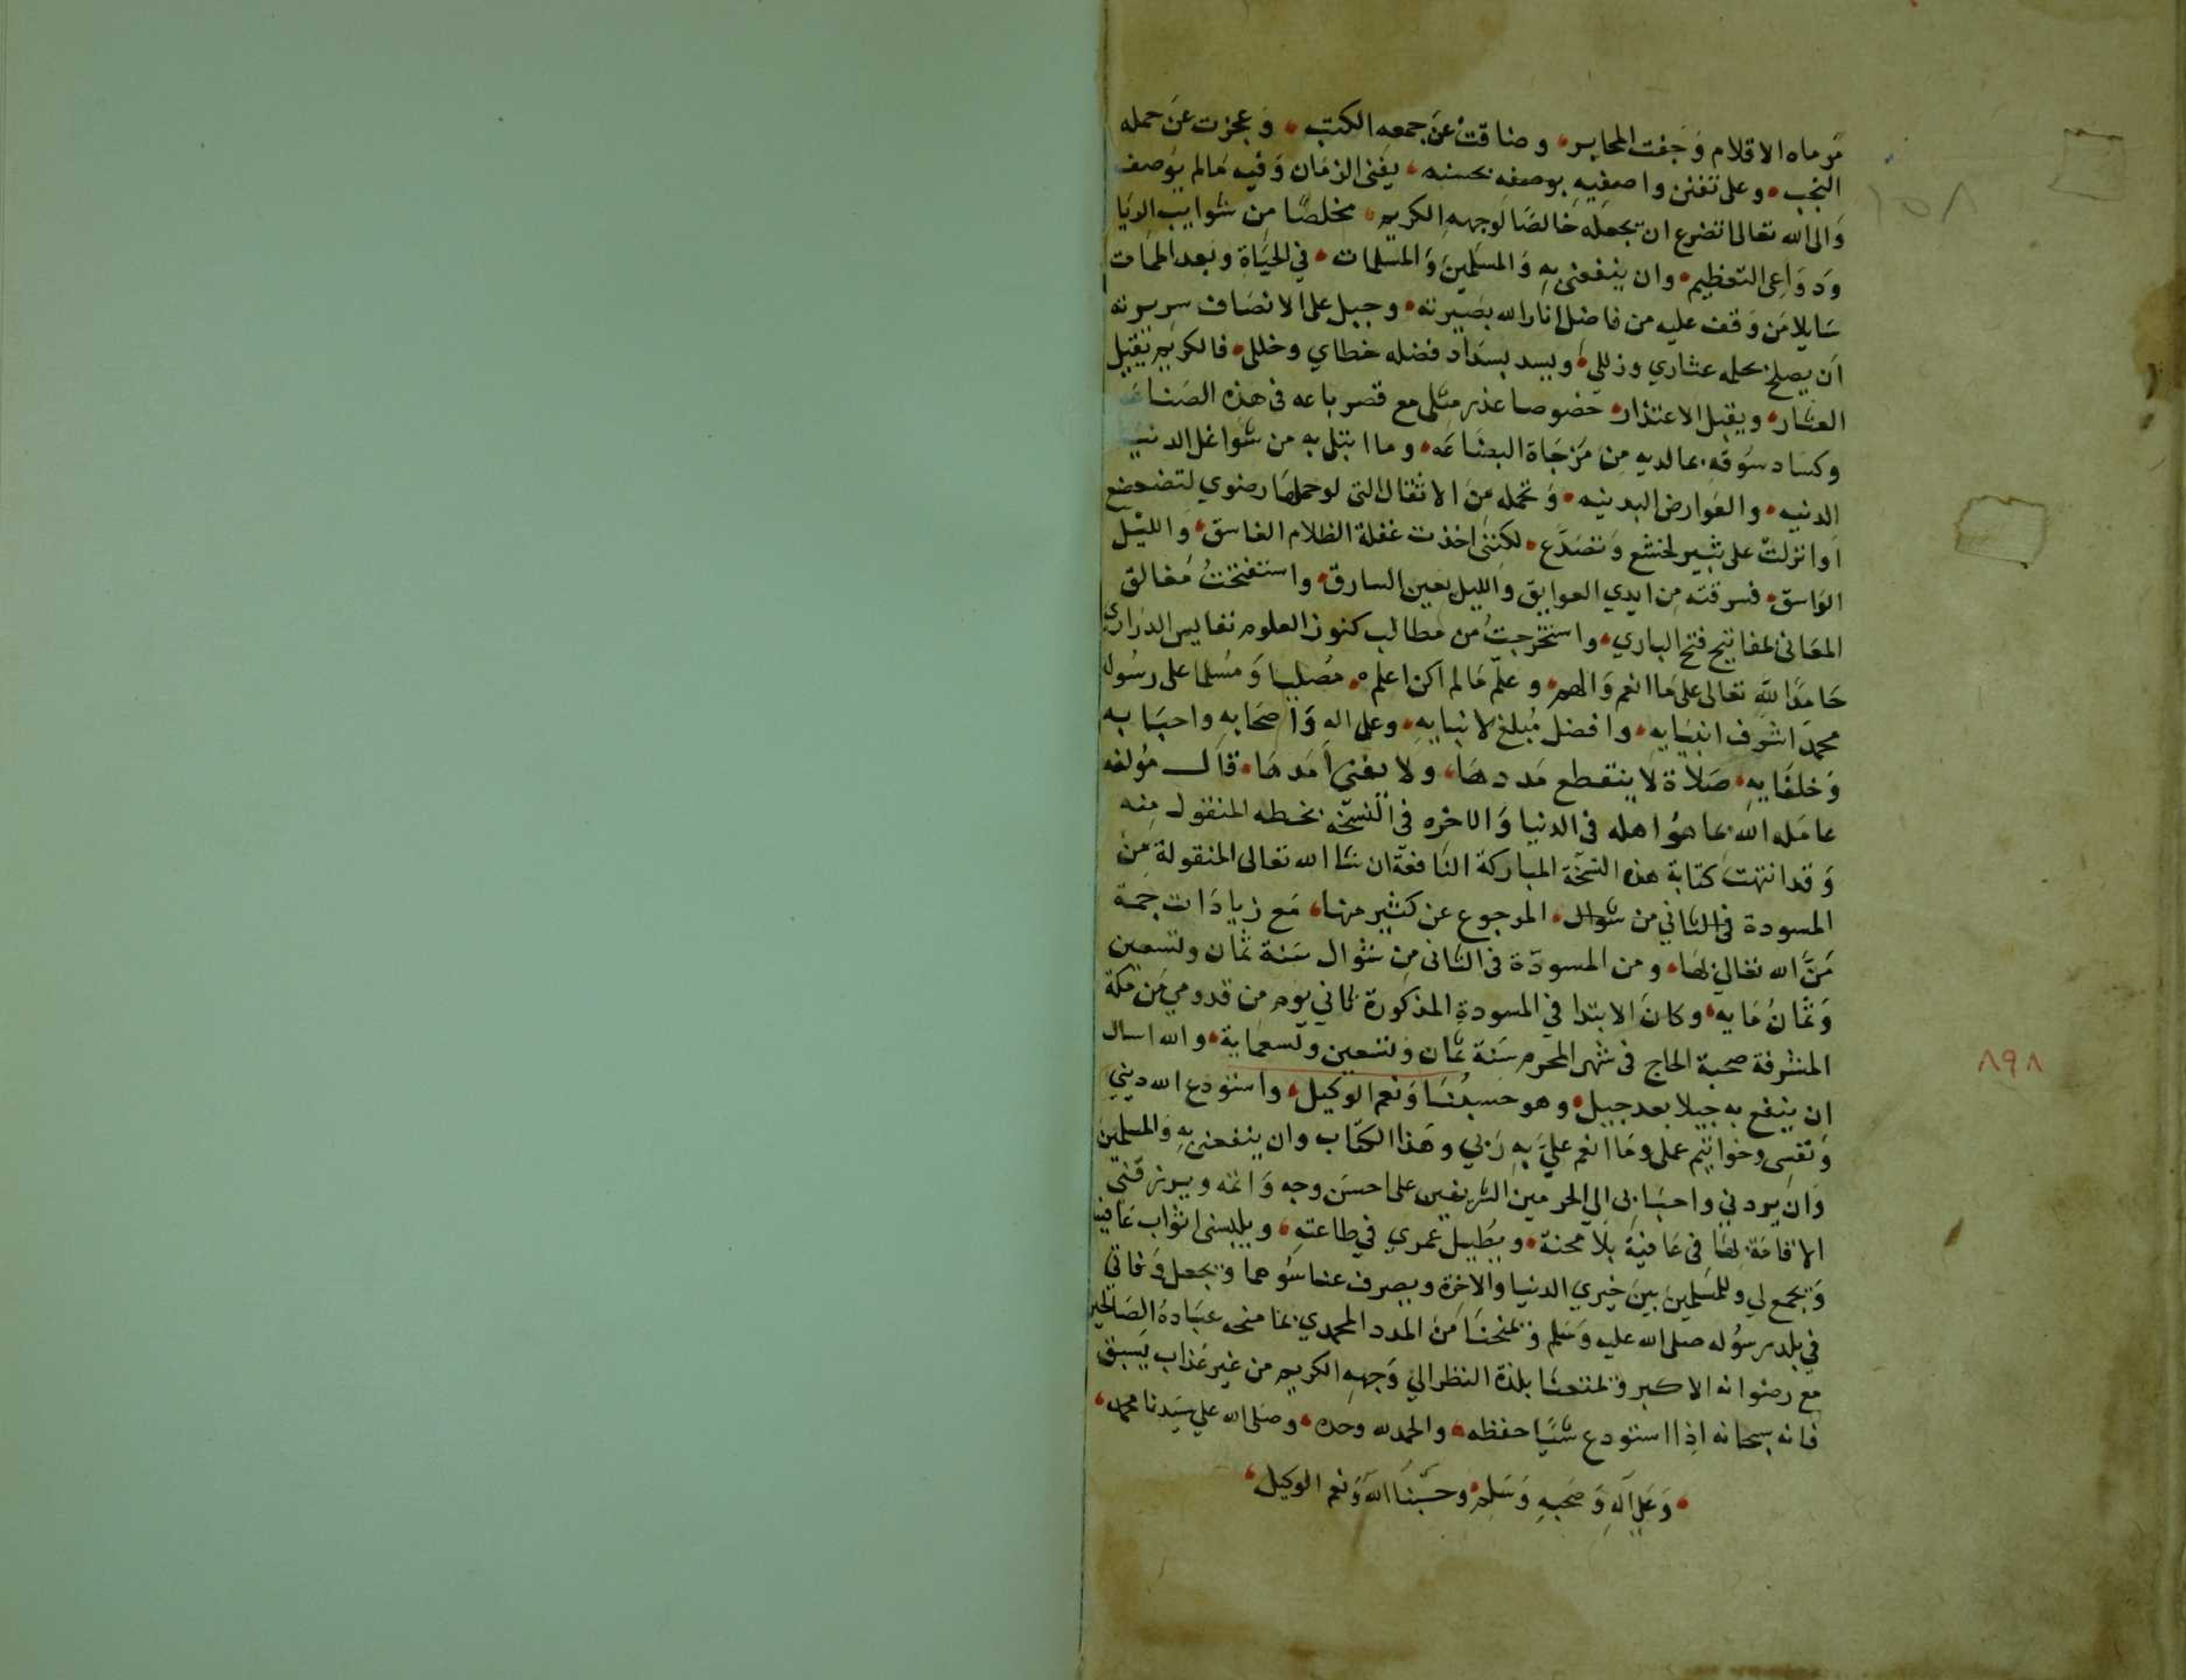 مرماه الاقلام وجفت المحابر، وضاقت عن جمعه الكتب، وعجزت عن حمله
النجب، وعلى تفنن واصفيه بوصفه بحسنه، يفنى الزمان وفيه مالم يوصف
والى الله تعالى اتضرع ان يجعله خالصا لوجهه الكريم، مخلصا من شوايب الريا
ودواعى التعظيم، وان ينفعنى به والمسلمين والمسلمات، في الحياة وبعد الممات
سايلا من وقف عليه من فاضل انار الله بصيرته، وجبل على الانصاف سريرته
ان يصلح بحلمه عثاري وزللي، ويسد بسداد فضله خطاي وخللي، فالكريم يقيل
العثار، ويقبل الاعتذار، خصوصا عذر مثلى مع قصر باعه فى هذه الصناعه
وكساد سوقه بمالديه من مزجاة البضاعه، وما ابتلى به من شواغل الدنيا
الدنيه، والعوارض البدنيه، وتحمله من الاثقال التى لو حملها رضوي لتضعضع
اوانزلت على ثبير لخشع وتصدع، لكننى اخذت غفلة الظلام الغاسق، والليل
الواسق، فسرقته من ايدي العوايق والليل بعين السارق، واستفتحت مغالق
المعانى بمفاتيح فتح الباري، واستخرجت من مطالب كنوز العلوم نفايس الدراري
حامدا لله تعالى على ما انعم والهم، وعلم مالم اكن اعلم، مصليا ومسلما على رسوله
محمد اشرف انبيايه، وافضل مبلغ لانبايه، وعلى اله واصحابه واحبابه
وخلفايه، صلاة لا ينقطع مددها، ولا يفنى امدها، قال مؤلفه
عامله الله بما هو اهله فى الدنيا والاخره فى النسخه بخطه المنقول منه
وقد انتهت كتابة هذه النسخة المباركة النافعة ان شا الله تعالى المنقولة من
المسودة فى الثاني من شوال، المرجوع عن كثير منها، مع زيادات جمة
من الله تعالى بها، ومن المسودة فى الثانى من شوال سنة ثمان وتسعين
وثمان مايه، وكان الابتدا في المسودة المذكورة ثاني يوم من قدومي من مكة
المشرفة صحبة الحاج فى شهر المحرم سنة ثمان وتسعين وتسعماية، والله اسال
٨٩٨
١٥٨
ان ينفع به جيلا بعد جيل، وهو حسبنا ونعم الوكيل، واستودع الله ديني
ونفسى وخواتيم عملى وما انعم علي به ربي وهذا الكتاب وان ينفعنى به والمسلمين
وان يردني واحبابى الى الحرمين الشريفين على احسن وجه واتمه ويرزقنى
الاقامة بها فى عافية بلا محنة، ويطيل عمري في طاعته، ويلبسنى اثواب عافيته
ويجمع لي وللمسلمين بين خيري الدنيا والاخرة ويصرف عنا سوهما ويجعل وفاتي
في بلد رسوله صلى الله عليه وسلم ويمنحنا من المدد المحمدي بما منحه عباده الصالحين
مع رضوانه الاكبر ويمتعنا بلذة النظر الي وجهه الكريم من غير عذاب يسبق
فانه سبحانه اذا استودع شيا حفظه، والحمدلله وحده، وصلى الله علي سيدنا محمد،
، وعلي اله وصحبه وسلم، وحسبنا الله ونعم الوكيل،